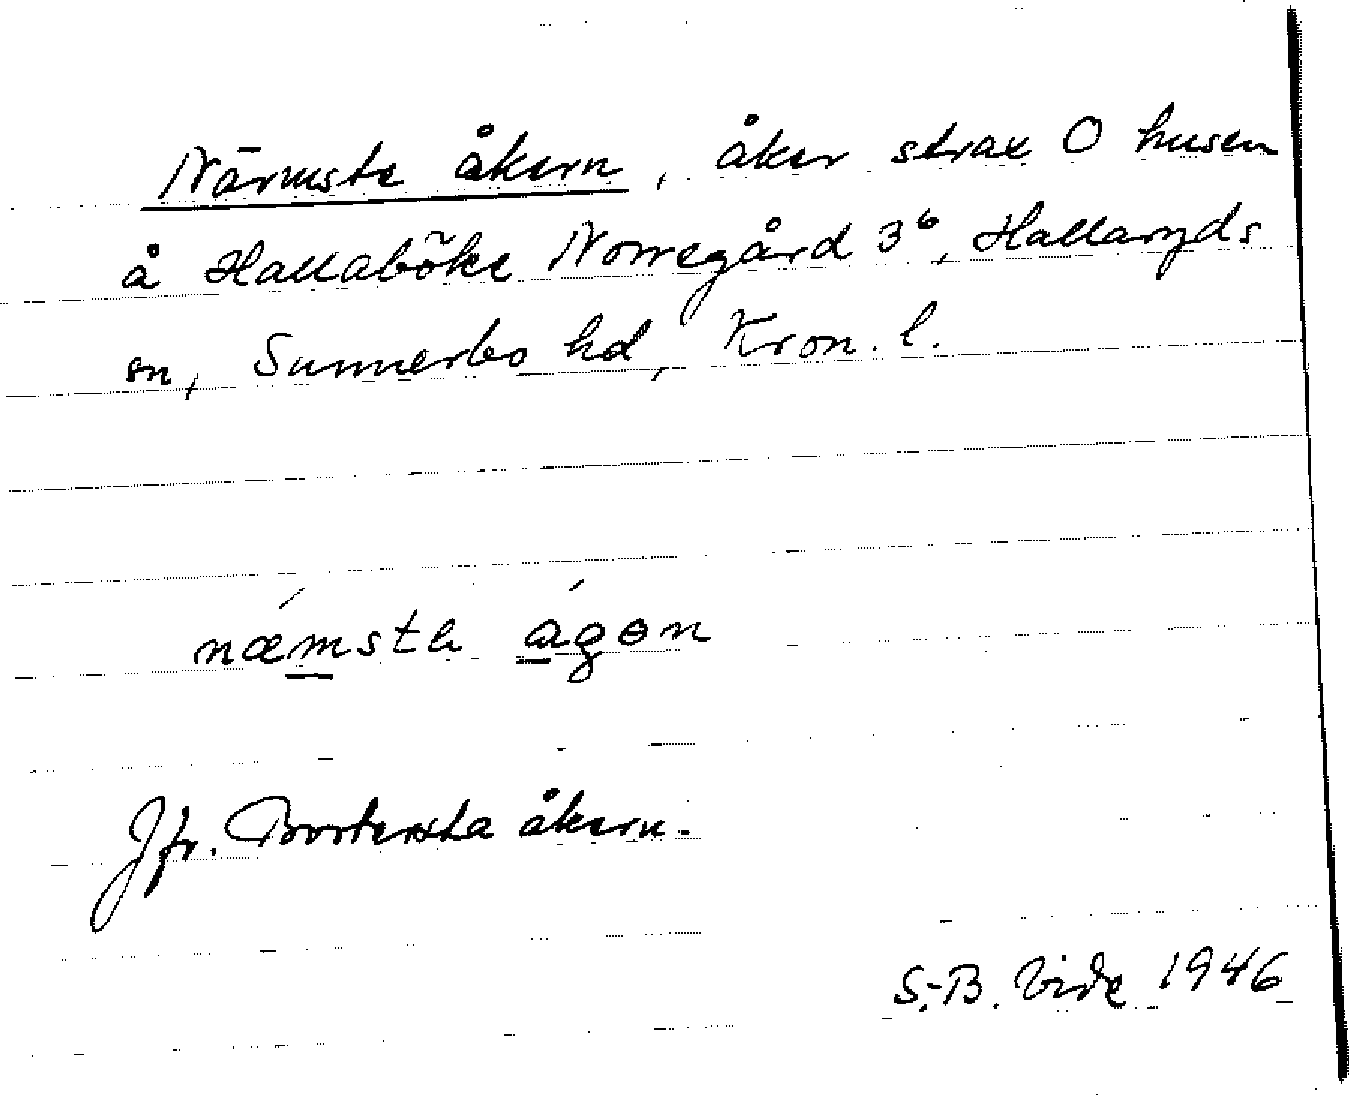 Närmste åkern, åker strax O husen
å Hallaböke Norregård 3⁶, Hallaryds
sn, Sunnerbo hd, Kron. l.
næmsta ágən
Jfr. Bortersta åkern.
S.-B. Vide 1946